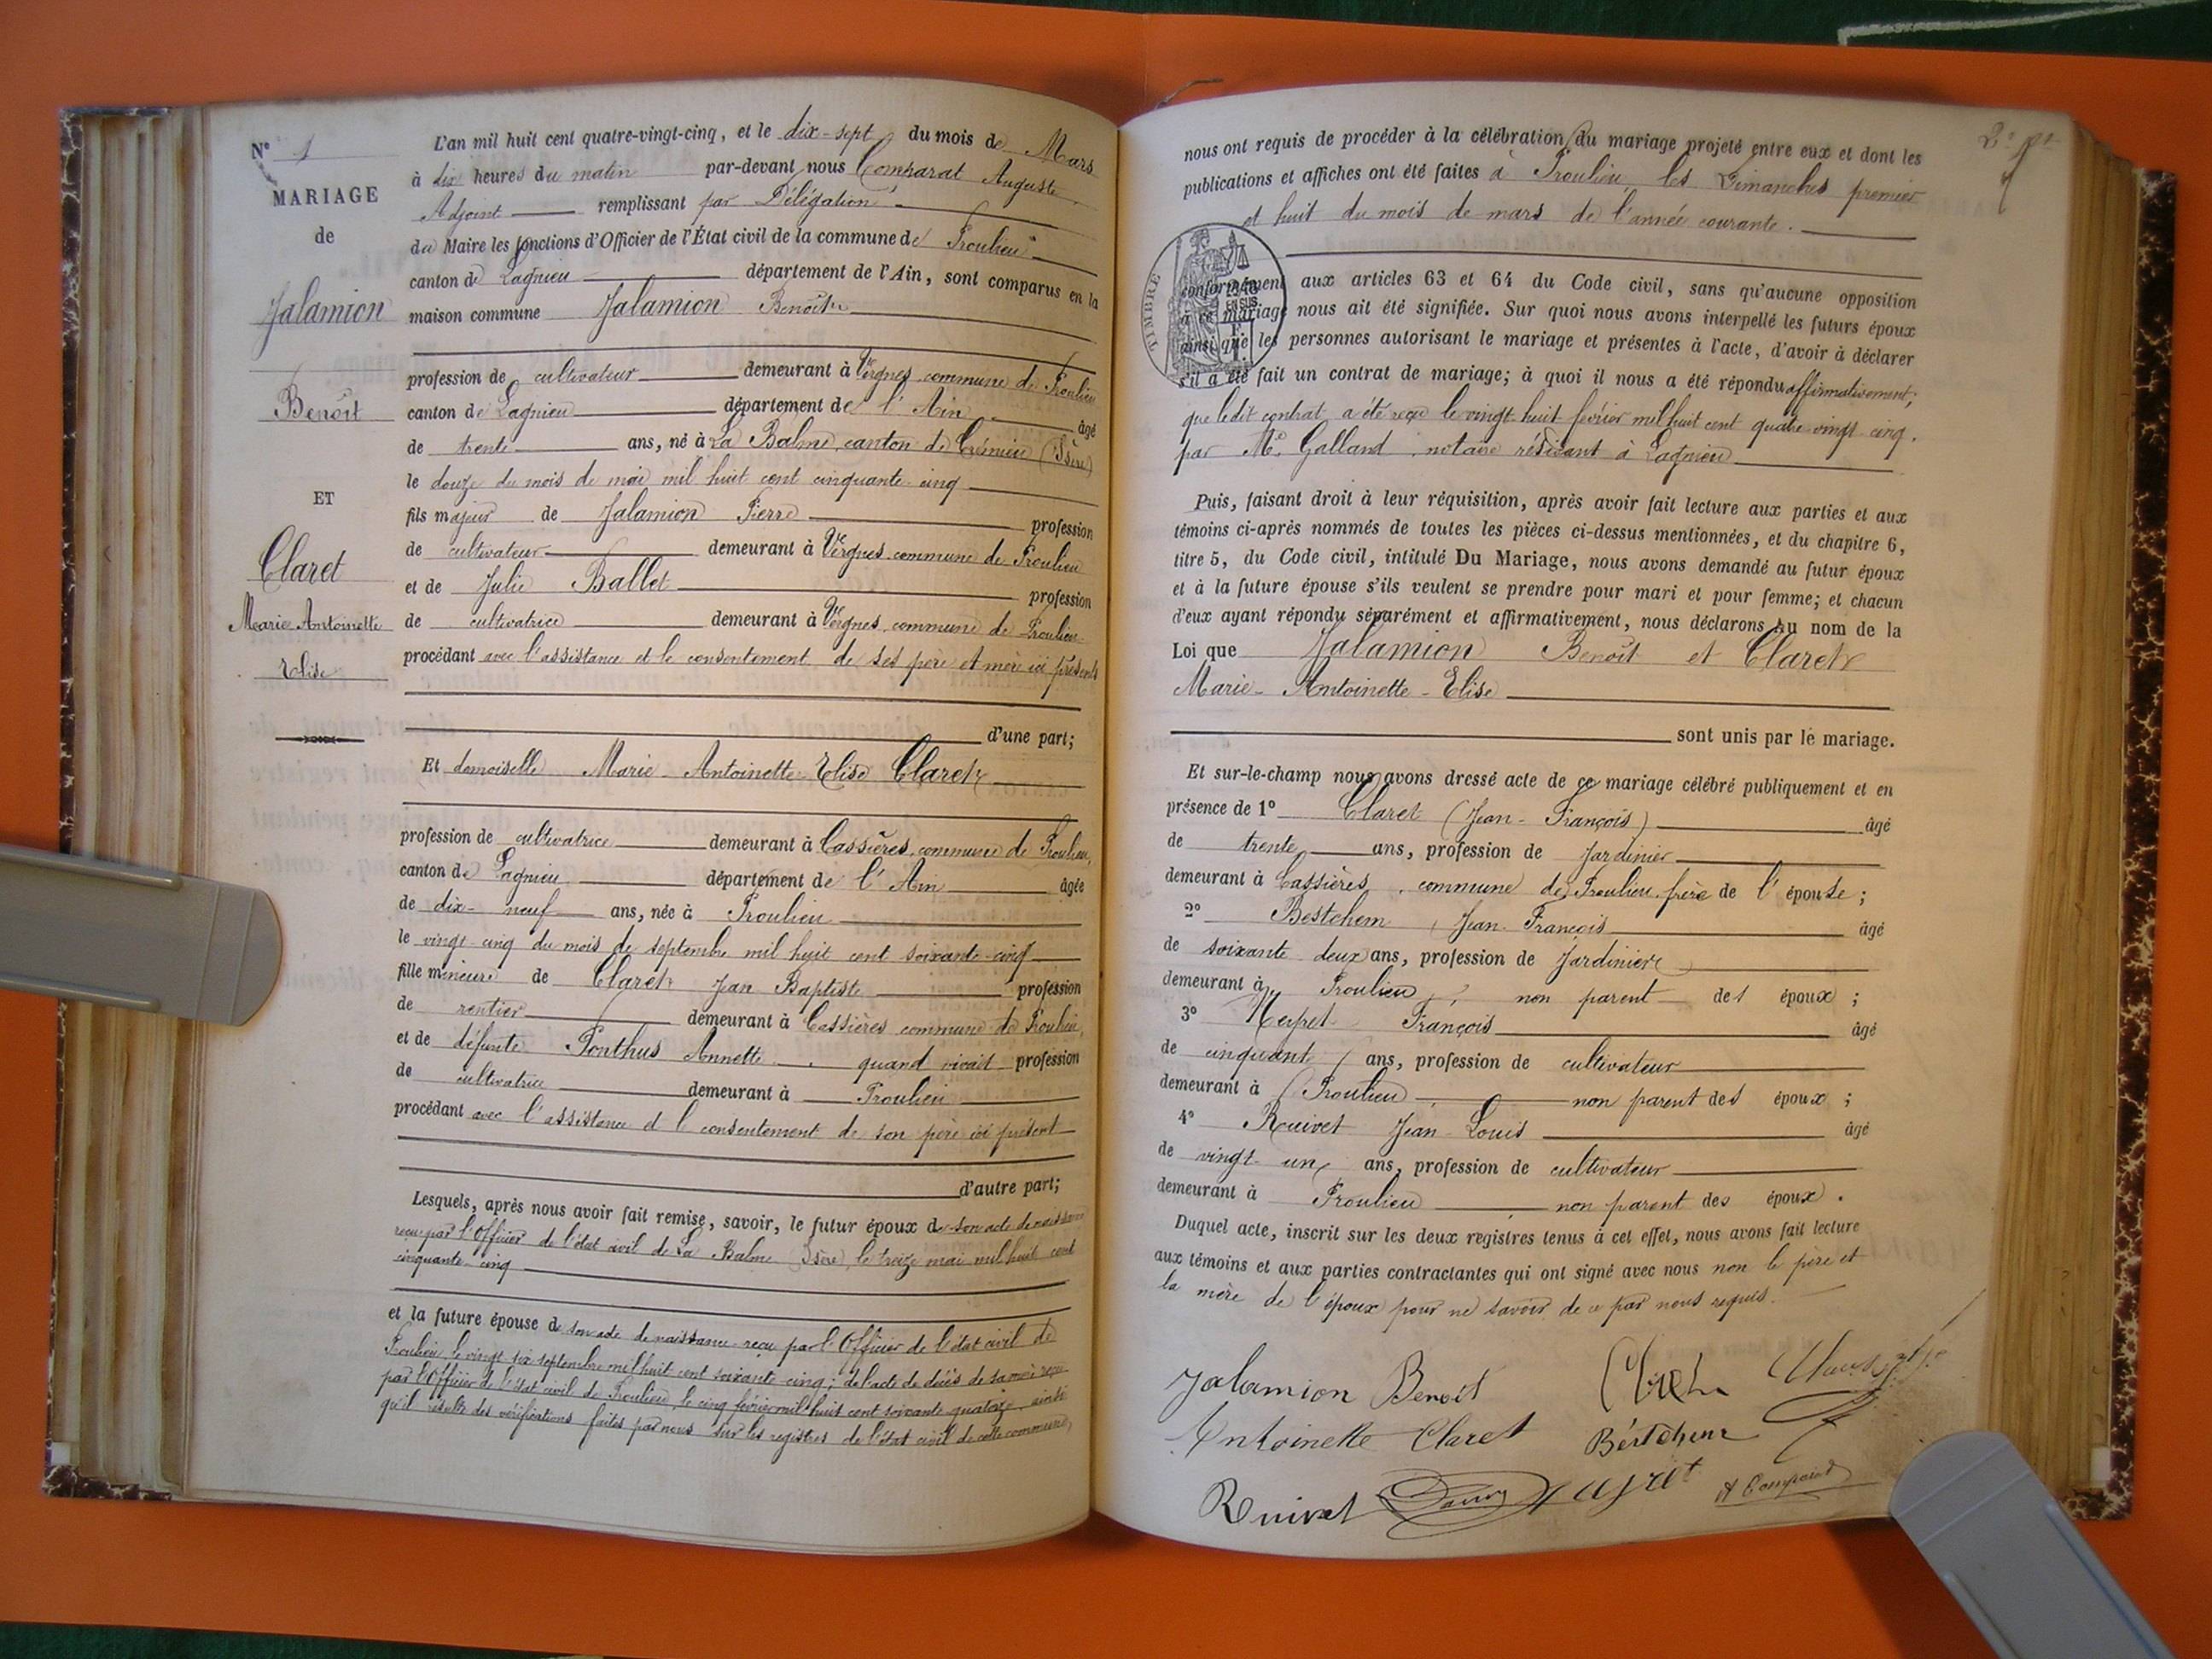 N° 1
MARIAGE
de
Jalamion
Benoît
ET
Claret
Marie Antoinette
Elise
L'an mil huit cent quatre-vingt-cinq, et le dix-sept du mois de Mars
à dix heures du matin par-devant nous Comparat Auguste
Adjoint remplissant par Délégation
du Maire les fonctions d'Officier de l'État civil de la commune de Proulieu
canton de Lagnieu département de l'Ain, sont comparus en la
maison commune Jalamion Benoît
profession de cultivateur demeurant à Vergnes commune de Proulieu
canton de Lagnieu département de l'Ain âgé
de trente ans, né à La Balme, canton de Crémieu (Isère)
le douze du mois de mai mil huit cent cinquante-cinq
fils majeur de Jalamion Pierre profession
de cultivateur demeurant à Vergnes commune de Proulieu
et de Julie Ballet profession
de cultivatrice demeurant à Vergnes, commune de Proulieu
procédant avec l'assistance et le consentement de ses père et mère ici présents
d'une part;
Et demoiselle Marie-Antoinette-Elise Claret
profession de cultivatrice demeurant à Cassières, commune de Proulieu,
canton de Lagnieu département de l'Ain âgée
de dix-neuf ans, née à Proulieu
le vingt-cinq du mois de septembre mil huit cent soixante-cinq
fille mineure de Claret Jean Baptiste profession
de rentier demeurant à Cassières commune de Proulieu,
et de défunte Ponthus Annette, quand vivait profession
de cultivatrice demeurant à Proulieu
procédant avec l'assistance et l consentement de son père ici présent
d'autre part;
Lesquels, après nous avoir fait remise, savoir, le futur époux de son acte de naissance
reçu par l'Officier de l'état civil de La Balme (Isère), le treize mai mil huit cent
cinquante-cinq
et la future épouse de son acte de naissance reçu par l'Officier de l'état civil de
Proulieu, le vingt six septembre mil huit cent soixante cinq; de l'acte de décès de sa mère reçu
par l'Officier de l'état civil de Proulieu, le cinq février mil huit cent soixante quatorze, ainsi
qu'il résulte des vérifications faites par nous sur les registres de l'état civil de cette commune,
nous ont requis de procéder à la célébration du mariage projeté entre eux et dont les
publications et affiches ont été faites à Proulieu les Dimanches premier
et huit du mois de mars de l'année courante.
TIMBRE
conformément aux articles 63 et 64 du Code civil, sans qu'aucune opposition
à ce mariage nous ait été signifiée. Sur quoi nous avons interpellé les futurs époux
ainsi que les personnes autorisant le mariage et présentes à l'acte, d'avoir à déclarer
s'il a été fait un contrat de mariage; à quoi il nous a été répondu affirmativement;
que ledit contrat a été reçu le vingt huit février mil huit cent quatre vingt cinq.
par Me Galland, notaire résidant à Lagnieu
Puis, faisant droit à leur réquisition, après avoir fait lecture aux parties et aux
témoins ci-après nommés de toutes les pièces ci-dessus mentionnées, et du chapitre 6,
titre 5, du Code civil, intitulé Du Mariage, nous avons demandé au futur époux
et à la future épouse s'ils veulent se prendre pour mari et pour femme; et chacun
d'eux ayant répondu séparément et affirmativement, nous déclarons au nom de la
Loi que Jalamion Benoît et Claret
Marie-Antoinette-Elise
sont unis par le mariage.
Et sur-le-champ nous avons dressé acte de ce mariage célébré publiquement et en
présence de 1° Claret (Jean-François) âgé
de trente ans, profession de Jardinier
demeurant à Cassières, commune de Proulieu, frère de l'épouse;
2° Bestchem Jean-François âgé
de soixante deux ans, profession de Jardinier
demeurant à Proulieu, non parent des époux;
3° Neyret François âgé
de cinquante ans, profession de cultivateur
demeurant à Proulieu, non parent des époux;
4° Ruivet Jean-Louis âgé
de vingt-un ans, profession de cultivateur
demeurant à Proulieu non parent des époux.
Duquel acte, inscrit sur les deux registres tenus à cet effet, nous avons fait lecture
aux témoins et aux parties contractantes qui ont signé avec nous non le père et
la mère de l'époux pour ne savoir de ce par nous requis.
Jalamion Benoit Claret
Antoinette Claret Béstchem
Ruivet Neyret A Comparat